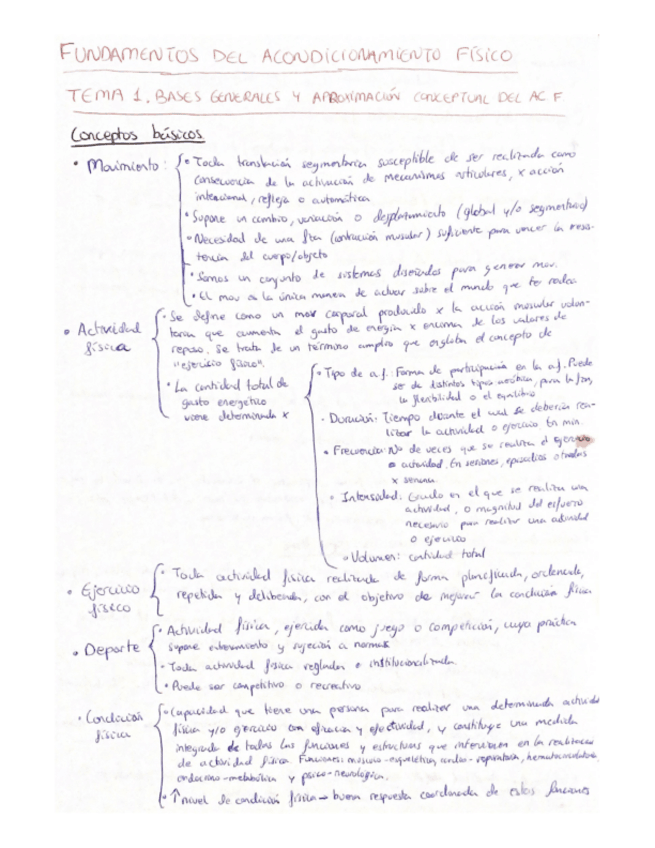 FUNDAMENTOS DEL ACONDICIONAMIENTO FÍSICO
TEMA 1. BASES GENERALES Y APROXIMACIÓN CONCEPTUAL DEL AC F
Conceptos básicos
• Movimiento: • Toda translación segmentaria susceptible de ser realizada como
consecuencia de la activación de mecanismos articulares, x acción
intencional, refleja o automática
• Supone un cambio, variación o desplazamiento (global y/o segmentario)
• Necesidad de una fza (contracción muscular) suficiente para vencer la resis-
tencia del cuerpo/objeto
• Somos un conjunto de sistemas diseñados para generar mov.
• El mov es la única manera de actuar sobre el mundo que te rodea
• Actividad física • Se define como un mov corporal producido x la acción muscular volun-
taria que aumenta el gasto de energía x encima de los valores de
reposo. Se trata de un término amplio que engloba el concepto de
"ejercicio físico".
• La cantidad total de
gasto energético
viene determinada x
• Tipo de a.f.: Forma de participación en la a.f. Puede
ser de distintos tipos: aeróbica, para la fza,
la flexibilidad o el equilibrio
• Duración: Tiempo durante el cual se debería rea-
lizar la actividad o ejercicio. En min.
• Frecuencia: Nº de veces que se realiza el ejercicio
o actividad. En sesiones, episodios o
x semana
• Intensidad: Grado en el que se realiza una
actividad, o magnitud del esfuerzo
necesario para realizar una actividad
o ejercicio
• Volumen: cantidad total
• Ejercicio físico • Toda actividad física realizada de forma planificada, ordenada,
repetida y deliberada, con el objetivo de mejorar la condición física
• Deporte • Actividad física, ejercida como juego o competición, cuya práctica
supone entrenamiento y sujeción a normas
• Toda actividad física reglada e institucionalizada
• Puede ser competitivo o recreativo
• Condición física • Capacidad que tiene una persona para realizar una determinada actividad
física y/o ejercicio con eficacia y efectividad, y constituye una medida
integrada de todas las funciones y estructuras que intervienen en la realización
de actividad física. Funciones: músculo-esquelética, cardio-respiratoria, hematocirculatoria
endocrino-metabólica y psico-neurológica.
• ↑ nivel de condición física → buena respuesta coordinada de estas funciones